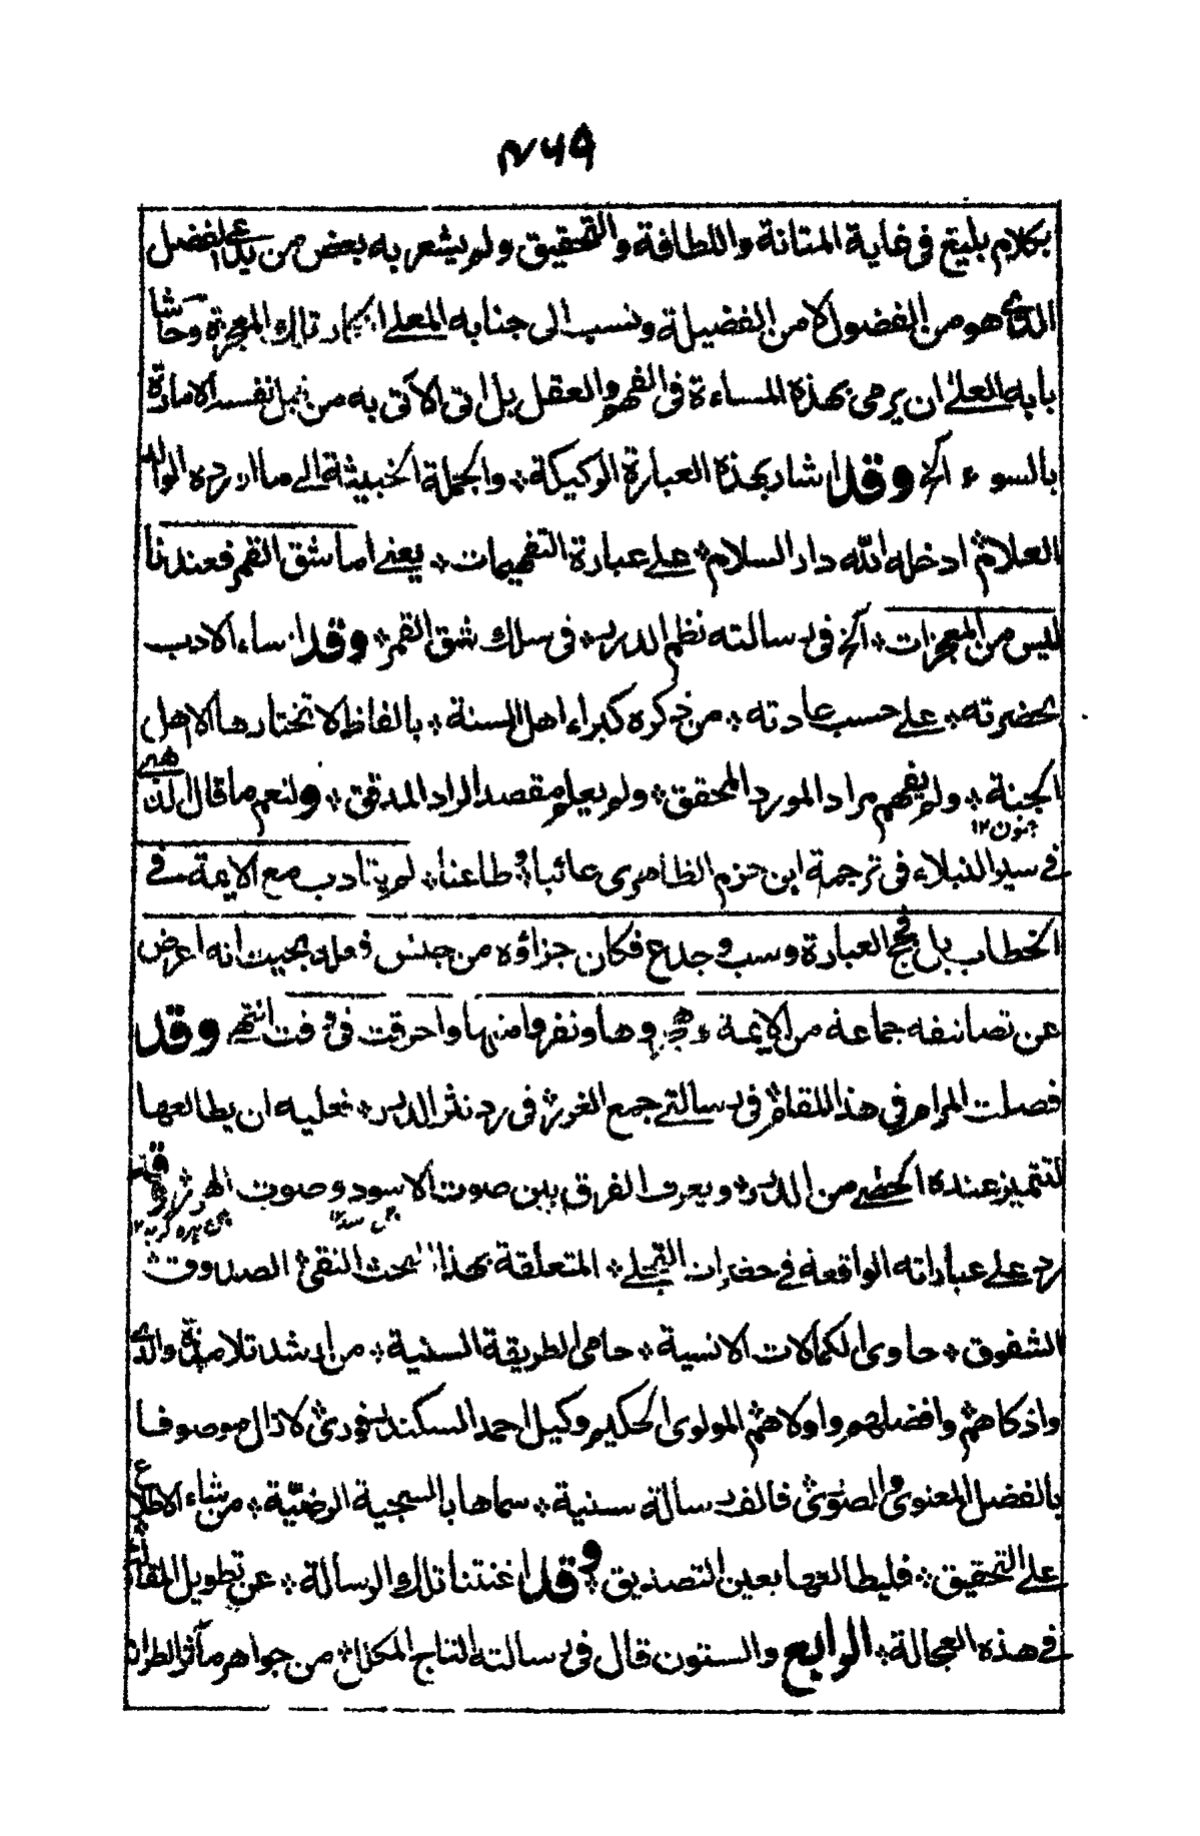 ۴۶۹
بكلام بليغ في غاية المتانة واللطافة والتحقيق ولم يشعر به بعض من يدعى الفضل
الذي هو من الفضول لا من الفضيلة ونسب الى جنابه المعلى انكار تلك المعجزة وحاشا
بابه العلى ان يرمى بهذه المساءة فى الفهم والعقل بل اتى الآتى به من قبل نفسه الامارة
بالسوء الخ وقد اشار بهذه العبارة الركيكة ؞ والجملة الخبيثة الى ما اورده الوالد
العلام ادخله الله دار السلام ؞ على عبارة التفهيمات ؞ يعنى اما شق القمر فعندنا
ليس من المعجزات ؞ الخ فى رسالته نظم الدرر ؞ فى سلك شق القمر ؞ وقد اساء الادب
بحضرته ؞ على حسب عادته ؞ من ذكره كبراء اهل السنة ؞ بالفاظ لا تختارها الا اهل
الجنة ؞ ولم يفهم مراد المورد المحقق ؞ ولم يعلم مقصد الراد المدقق ؞ ولنعم ما قال الذهبي
جنون ١٢
في سير النبلاء فى ترجمة ابن حزم الظاهرى عائبا ؞ وطاعنا ؞ لم يتادب مع الايمة فى
الخطاب بل فجج العبارة وسب وجدع فكان جزاؤه من جنس فعله بحيث انه اعرض
عن تصانيفه جماعة من الايمة وهجروها ونفروا منها واحرقت فى وقت انتهى وقد
فصلت المرام في هذا المقام فى رسالتي جمع الغرر فى رد نثر الدرر ؞ فعليه ان يطالعها
لتتميز عنده الحضى من الدرر ؞ ويعرف الفرق بين صوت الاسود وصوت الهرر ؞ وقد
رد على عباراته الواقعة في حضرات القبلى ؞ المتعلقة بهذا البحث النقي ؞ الصدوق
الشفوق ؞ حاوى الكمالات الانسية ؞ حامى الطريقة السنية ؞ من ارشد تلامذة والدي
واذكاهم وافضلهم واولاهم المولوى الحكيم وكيل احمد السكندرفوري لا زال موصوفا
بالفضل المعنوى والصوري فالف رسالة سنية ؞ سماها بالسجنية الرضية ؞ من شاء الاطلاع
على التحقيق ؞ فليطالعها بعين التصديق ؞ وقد اغنتنا تلك الرسالة ؞ عن تطويل المقالة
في هذه العجالة ؞ الرابع والستون قال فى رسالته التاج المكلل ؞ من جواهر مآثر الطراز